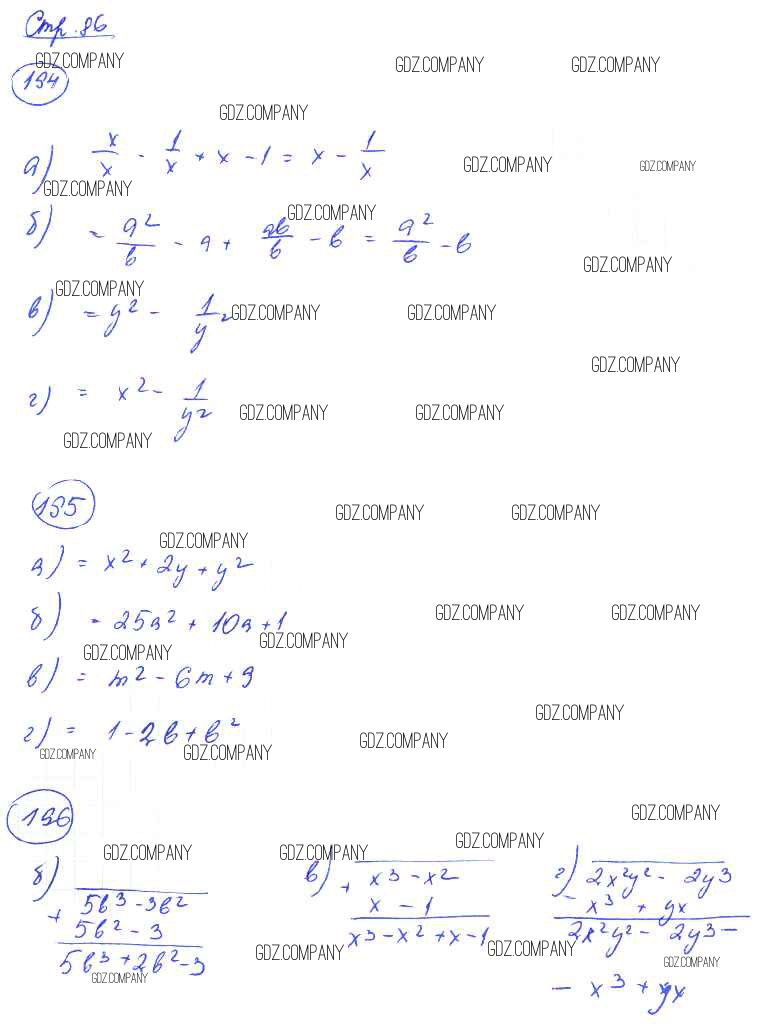 Стр. 86
GDZ.COMPANY GDZ.COMPANY GDZ.COMPANY
194
GDZ.COMPANY
а) x/x - 1/x + x - 1 = x - 1/x
GDZ.COMPANY GDZ.COMPANY
GDZ.COMPANY
GDZ.COMPANY
б) = a²/b - a + ab/b - b = a²/b - b
GDZ.COMPANY
GDZ.COMPANY
в) = y² - 1/y²
GDZ.COMPANY GDZ.COMPANY
GDZ.COMPANY
г) = x² - 1/y²
GDZ.COMPANY GDZ.COMPANY
GDZ.COMPANY
195
GDZ.COMPANY GDZ.COMPANY
GDZ.COMPANY
а) = x² + 2y + y²
б) = 25a² + 10a + 1
GDZ.COMPANY GDZ.COMPANY
GDZ.COMPANY
GDZ.COMPANY
в) = m² - 6m + 9
GDZ.COMPANY
г) = 1 - 2b + b²
GDZ.COMPANY
GDZ.COMPANY GDZ.COMPANY
196
GDZ.COMPANY
GDZ.COMPANY
GDZ.COMPANY GDZ.COMPANY
б) + 5b³ - 3b²
5b² - 3
5b³ + 2b² - 3
GDZ.COMPANY
в) + x³ - x²
x - 1
x³ - x² + x - 1
GDZ.COMPANY
г) - 2x²y² - 2y³
x³ + yx
2x²y² - 2y³ -
GDZ.COMPANY
GDZ.COMPANY
- x³ + yx